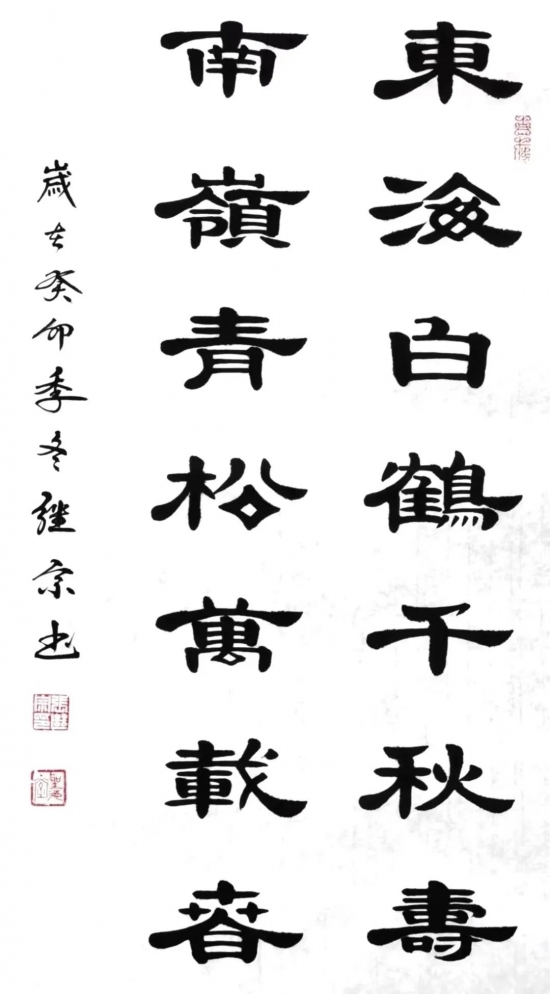 東海白鶴千秋壽
南嶺青松萬載春
歲在癸卯季冬繼宗書